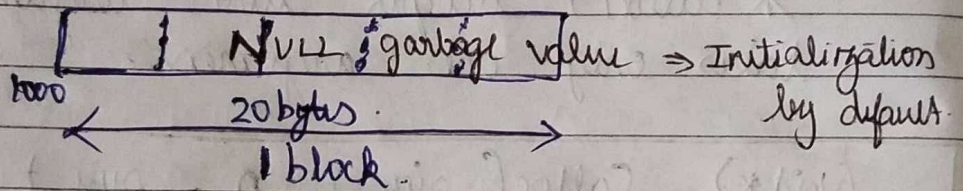 NULL garbage value ⇒ Initialization
by default.
1000
20 bytes.
1 block.